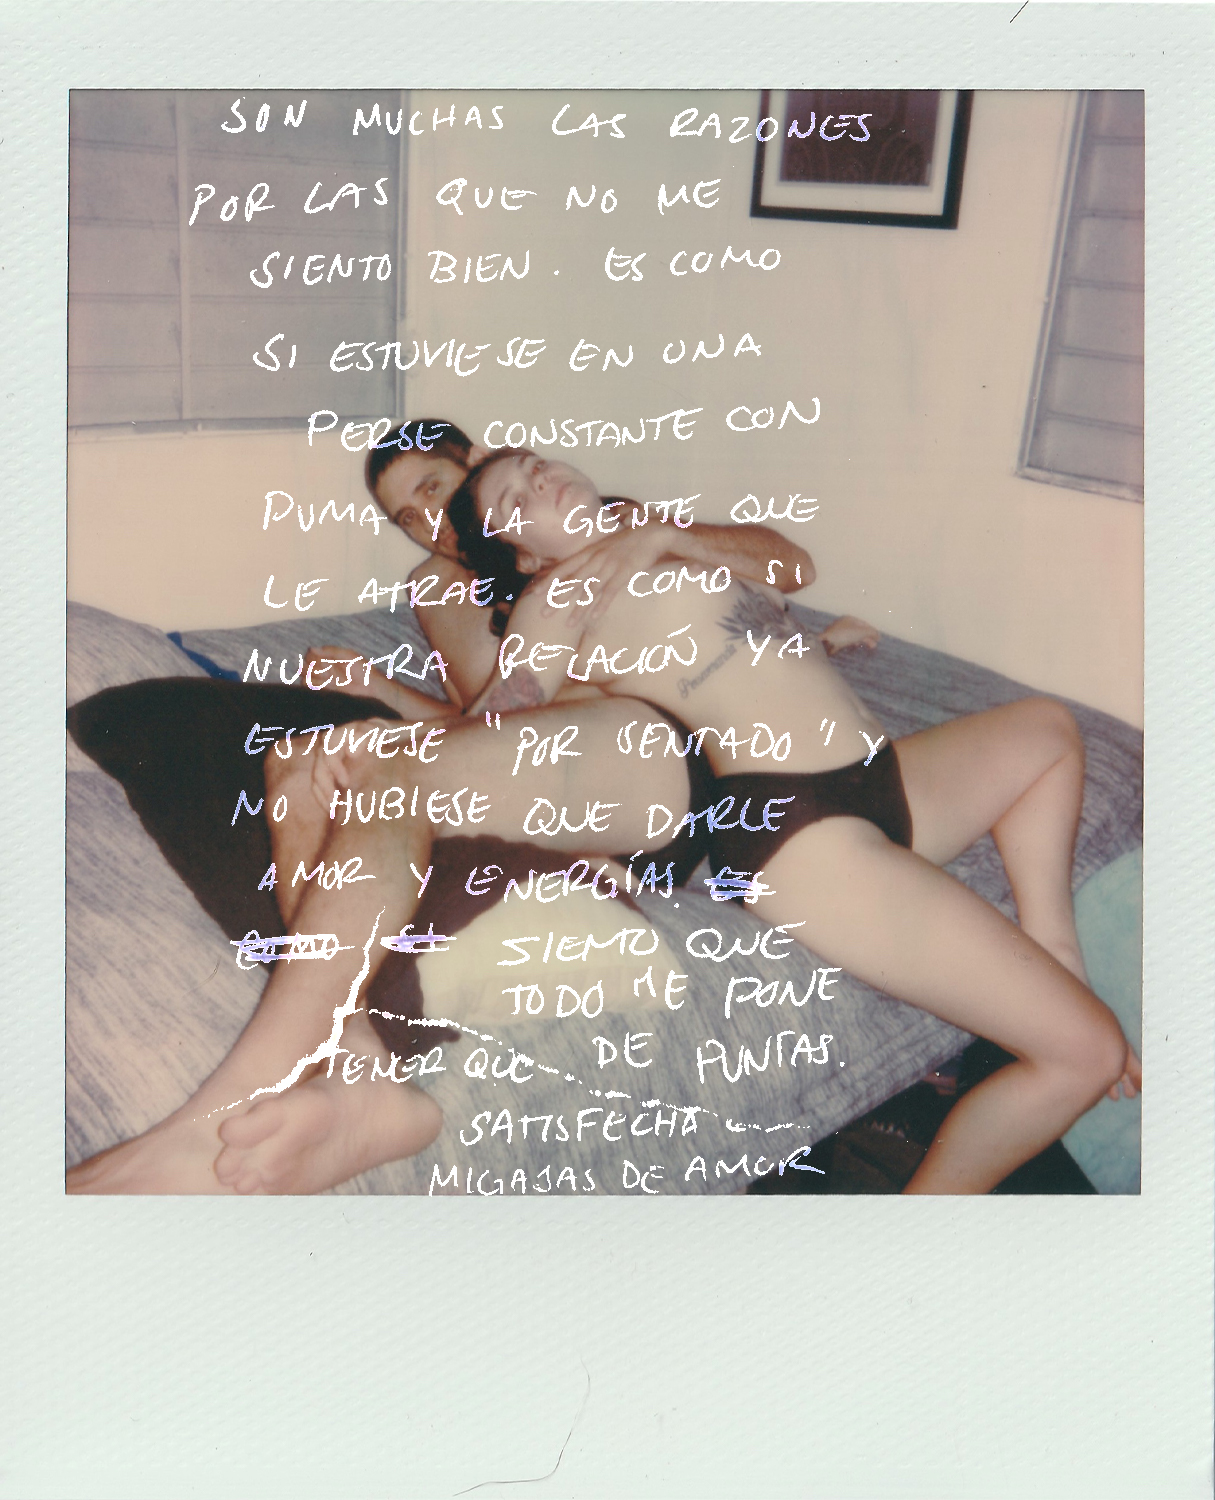 SON MUCHAS LAS RAZONES
POR LAS QUE NO ME
SIENTO BIEN. ES COMO
SI ESTUVIESE EN UNA
PERSE CONSTANTE CON
PUMA Y LA GENTE QUE
LE ATRAE. ES COMO SI
NUESTRA RELACIÓN YA
ESTUVIESE "POR SENTADO" Y
NO HUBIESE QUE DARLE
AMOR Y ENERGÍAS. ES
COMO SI SIENTO QUE
TODO ME PONE
TENER QUE DE PUNTAS.
SATISFECHA
MIGAJAS DE AMOR